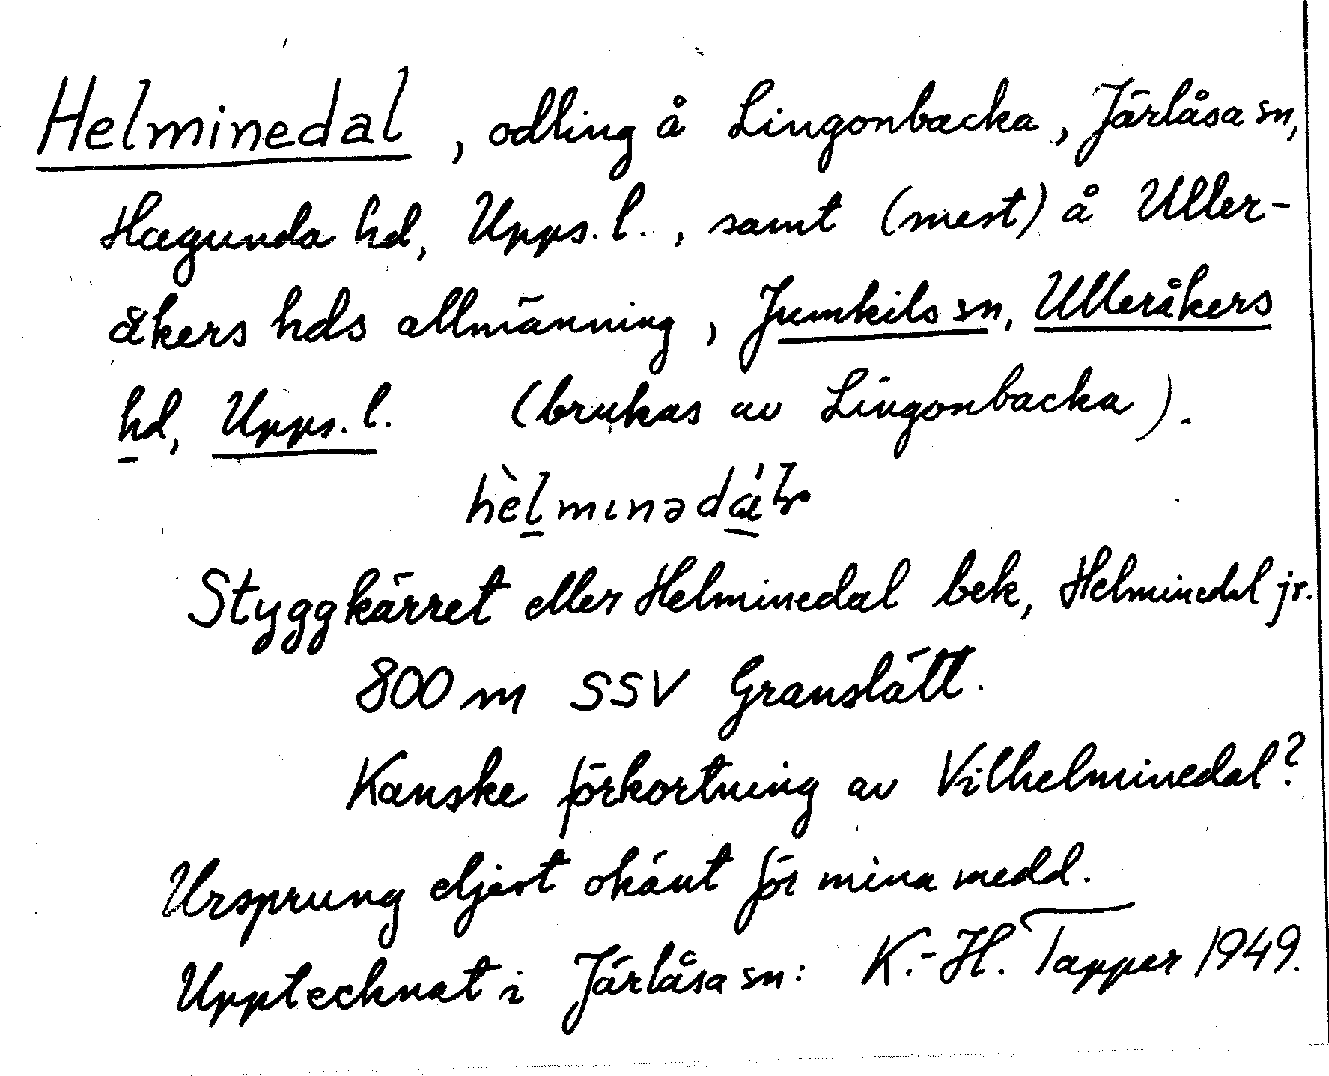 Helminedal, odling å Lingonbacka, Järlåsa sn,
Hagunda hd, Upps. l., samt (mest) å Uller-
åkers hds allmänning, Jumkils sn, Ulleråkers
hd, Upps. l. (brukas av Lingonbacka).
hèlmınədáƚ
Styggkärret eller Helminedal bek, Helminedal jr.
800 m SSV Granslätt.
Kanske förkortning av Vilhelminedal?
Ursprung eljest okänt för mina medd.
Upptecknat i Järlåsa sn: K.-H. Tapper 1949.